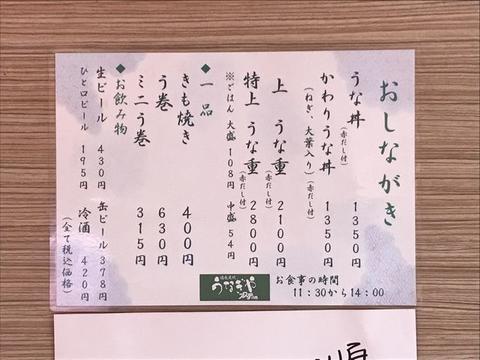 おしながき
うな丼(赤だし付) 1350円
かわりうな丼 1350円
(ねぎ、大葉入り)(赤だし付)
上 うな重(赤だし付) 2100円
特上 うな重(赤だし付) 2800円
※ごはん 大盛 108円 中盛 54円
◆一品
きも焼き 400円
う巻 630円
ミニう巻 315円
◆お飲み物
生ビール 430円 缶ビール 378円
ひと口ビール 195円 冷酒 420円
(全て税込価格)
うなぎや
お食事の時間
11:30から14:00